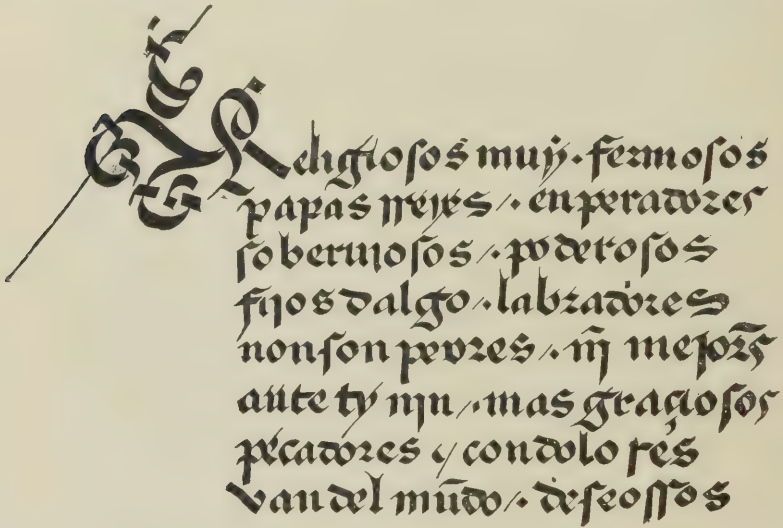 Religiosos muy · fermosos
papas rreyes /· enperadores
soberuiosos /· poderosos
fijos dalgo /· labradores
non son peores /· nĩ mejores̃
ante ty nin /· mas graçiosos
pecadores / con dolores
van del mũdo /· deseossos